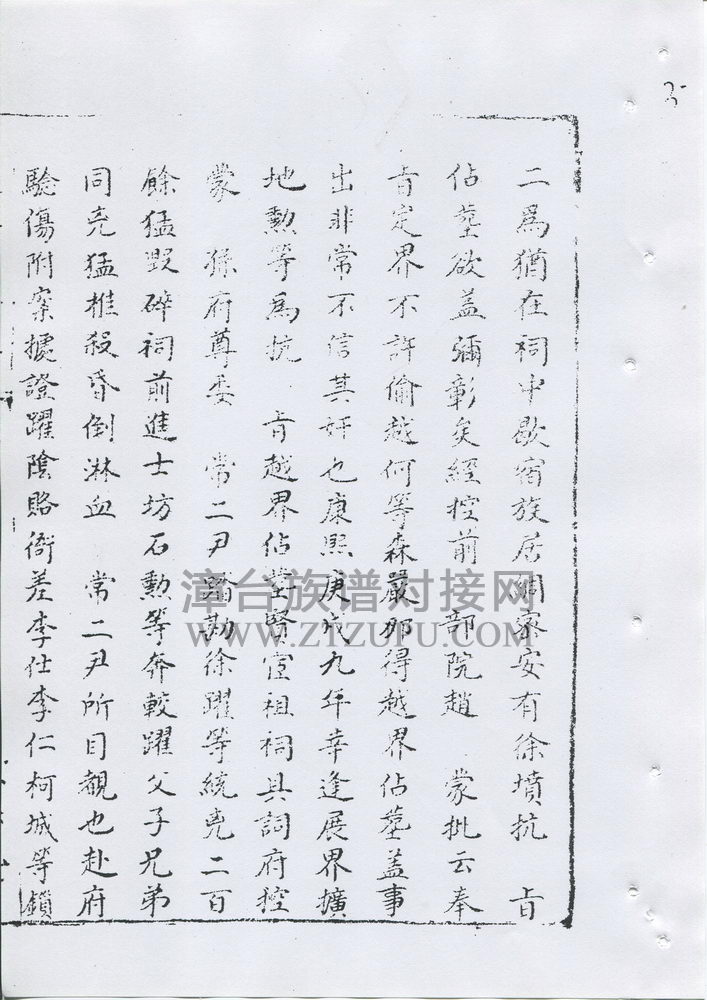 二為猶在祠中歇宿族居綢密安有徐墳抗 㫖
佔塟欲蓋彌彰矣經控前 部院趙 蒙批云奉
㫖定界不許偷越何等森嚴那得越界佔塟蓋事
出非常不信其奸也康熙庚戌九年幸逢展界擴
地勲等為抗 㫖越界佔塟賢宦祖祠具詞府控
蒙 孫府尊委 常二尹踏勘徐躍等統兇二百
餘猛毀碎祠前進士坊石勲等奔較躍父子兄弟
同兇猛推殺昏倒淋血 常二尹所目覩也赴府
驗傷附案據證躍陰賂衙差李仕李仁柯城等鎖
漳台族谱对接网
WWW.ZTZUPU.COM